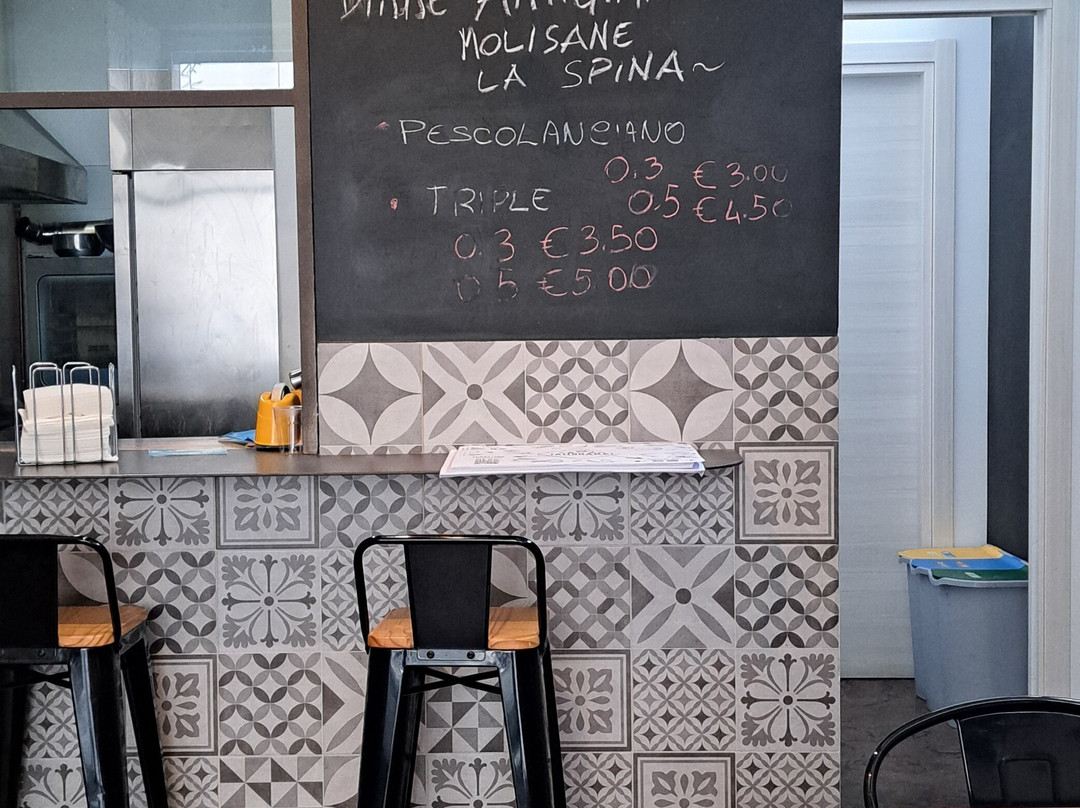 BIRRE ARTIGIANALI
MOLISANE
LA SPINA~
• PESCOLANCIANO
0.3 € 3.00
0.5 € 4.50
• TRIPLE
0.3 € 3.50
0.5 € 5.00